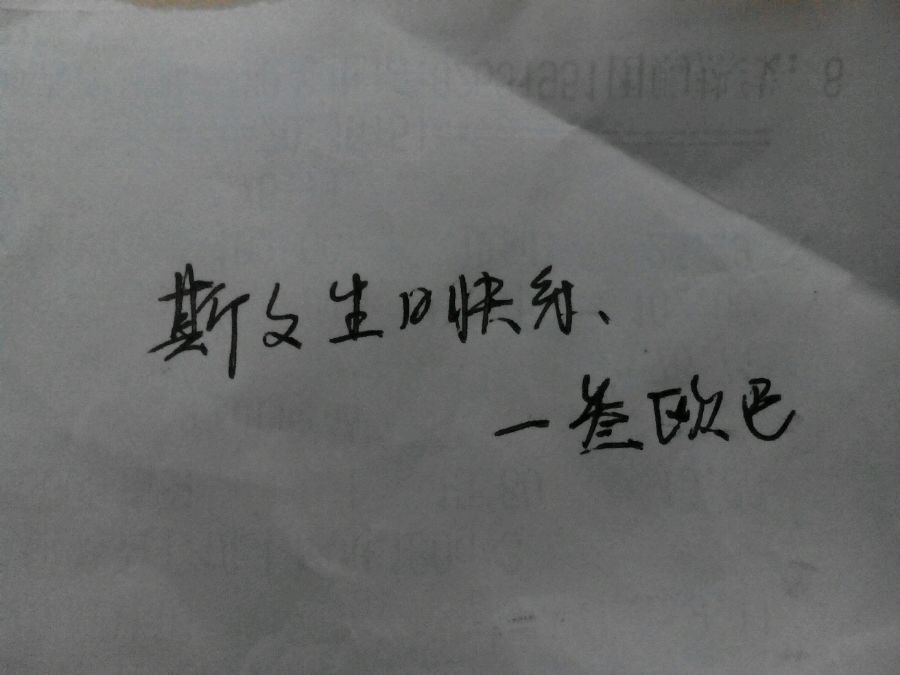 斯文生日快乐、
一叁欧巴